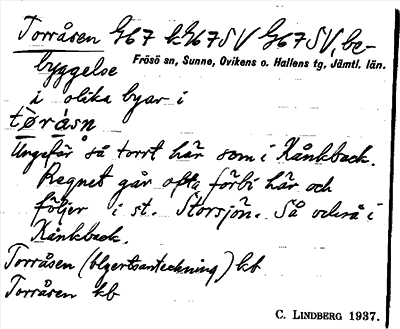 Torråsen G67 kG67SV G67SV, be-
byggelse
Frösö sn, Sunne, Ovikens o. Hallens tg, Jämtl. län.
i olika byar i
tøråsn
Ungefär så torrt här som i Kånkback.
Regnet går ofta förbi här och
följer i st. Storsjön. Så också i
Kånkback.
Torråsen (blyertsanteckning) kb
Torråsen kb
C. LINDBERG 1937.